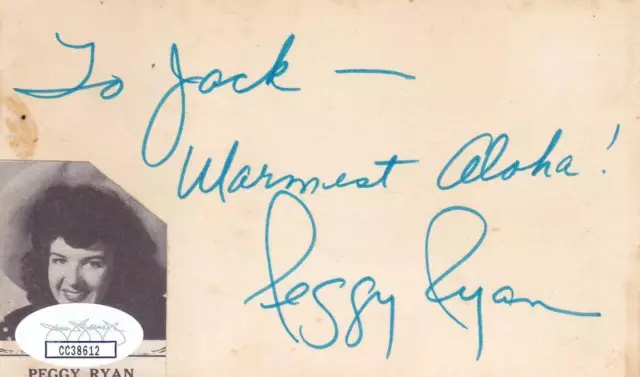 To Jack —
Warmest Aloha!
Peggy Ryan
CC38612
PEGGY RYAN